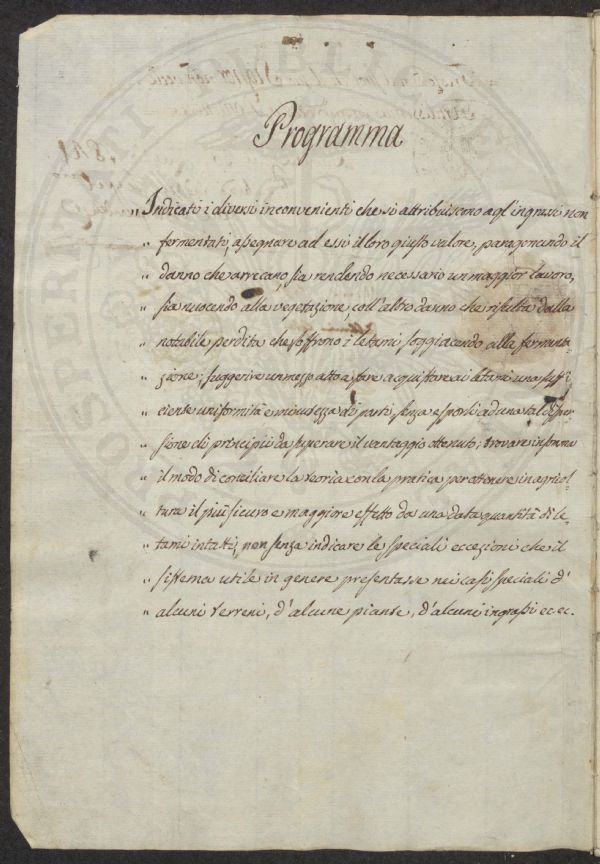 Programma
„ Indicati i diversi inconvenienti che si attribuiscono agl'ingrassi non
„ fermentati, assegnare ad essi il loro giusto valore, paragonando il
„ danno che arrecano, sia rendendo necessario un maggior lavoro,
„ sia nuocendo alla vegetazione, coll'altro danno che risulta dalla
„ notabile perdita che soffrono i letami soggiacendo alla fermenta-
„ zione; suggerire un mezzo atto a fare acquistare ai letami una suffi
„ ciente uniformità e minutezza di parti, senza esporli ad una tal disper-
„ sione di principii da superare il vantaggio ottenuto; trovare insomma
„ il modo di conciliare la teoria con la pratica per ottenere in agricol-
„ tura il più sicuro e maggiore effetto da una data quantità di le-
„ tami intatti, non senza indicare le speciali eccezioni che il
„ sistema utile in genere presentasse nei casi speciali d'
„ alcuni terreni, d'alcune piante, d'alcuni ingrassi ec. ec.